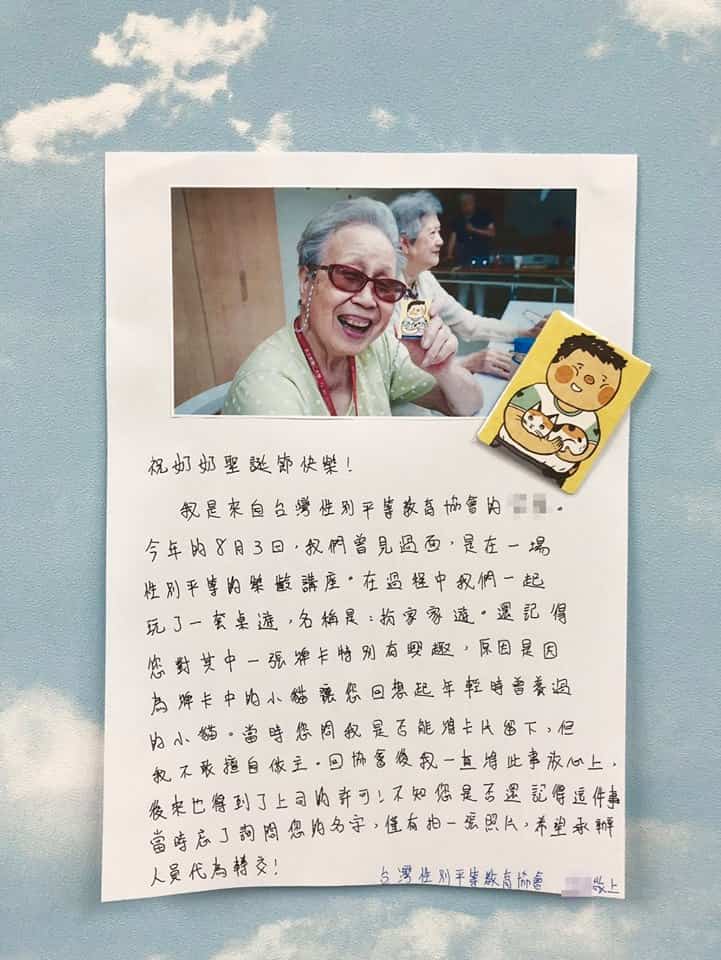 祝奶奶聖誕節快樂!
我是來自台灣性別平等教育協會的
今年的8月3日,我們曾見過面,是在一場
性別平等的樂齡講座。在過程中我們一起
玩了一套桌遊,名稱是:扮家家遊。還記得
您對其中一張牌卡特別有興趣,原因是因
為牌卡中的小貓讓您回想起年輕時曾養過
的小貓。當時您問我是否能將卡片留下,但
我不敢擅自做主。回協會後我一直將此事放心上,
後來也得到了上司的許可!不知您是否還記得這件事
當時忘了詢問您的名字,僅有拍一張照片,希望承辦
人員代為轉交!
台灣性別平等教育協會 敬上